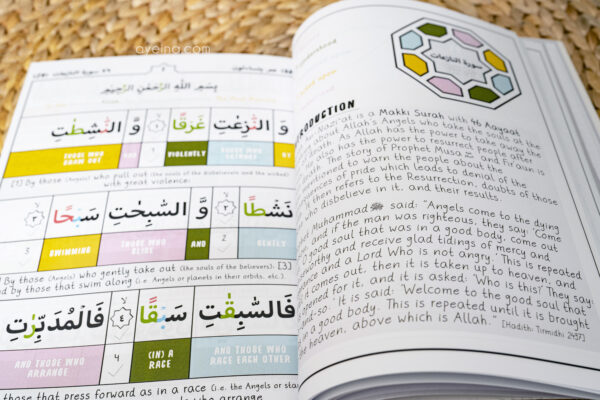 ayeina.com
بِسْمِ اللهِ الرَّحْمٰنِ الرَّحِيْمِ
وَ النّٰزِعٰتِ غَرْقًا ١ وَّ النّٰشِطٰتِ
BY THOSE WHO EXTRACT VIOLENTLY 1 AND THOSE WHO DRAW OUT
[1] By those (Angels) who pull out (the souls of the disbelievers and the wicked)
with great violence.
نَشْطًا ٢ وَّ السّٰبِحٰتِ سَبْحًا ٣
GENTLY 2 AND THOSE WHO GLIDE SWIMMING 3
By those (Angels) who gently take out (the souls of the believers); [3]
by those that swim along (i.e. Angels or planets in their orbits, etc.).
فَالسّٰبِقٰتِ سَبْقًا ٤ فَالْمُدَبِّرٰتِ
AND THOSE WHO RACE EACH OTHER (IN) A RACE 4 AND THOSE WHO ARRANGE
those that press forward as in a race (i.e. the Angels or
who arrange
سورة النازعات
INTRODUCTION
Nazi'at is a Makki Surah with 46 Aayaat.
about Allah's Angels who take the soul at the
death. As Allah has the power to take away the
also has the power to resurrect people after
death. The story of Prophet Musa and Fir'aun is
mentioned to warn the people about the
consequences of pride which leads to denial of the
then refers to the Resurrection, doubts of those
who disbelieve in it, and their results.
Muhammad ﷺ said: "Angels come to the dying
and if the man was righteous, they say: 'Come
O good soul that was in a good body, come out
worthy and receive glad tidings of mercy and
and a Lord Who is not angry.' This is repeated
comes out, then it is taken up to heaven, and
opened for it, and it is asked: 'Who is this?' They say:
and-so.' It is said: 'Welcome to the good soul that
in a good body. This is repeated until it is brought
heaven, above which is Allah." [Hadith: Tirmidhi 2437]